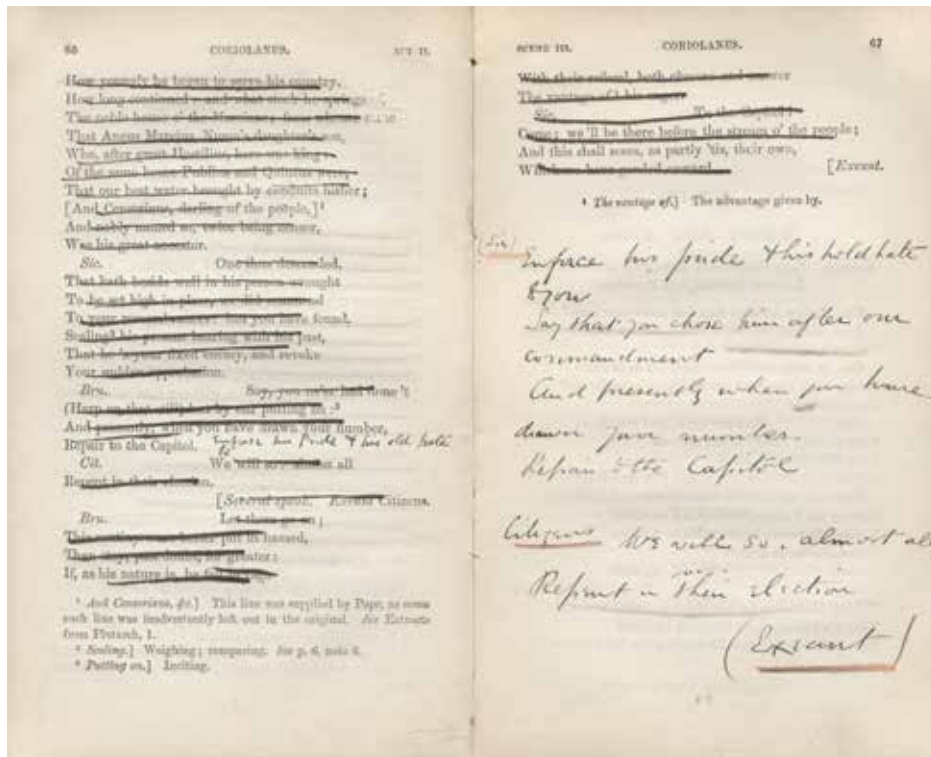 ACT II.
CORIOLANUS.
How youngly he began to serve his country,
How long continued; and what stock he springs of,
The noble house o' the Marcians; from whence came
That Ancus Marcius, Numa's daughter's son,
Who, after great Hostilius, here was king;
Of the same house Publius and Quintus were,
That our best water brought by conduits hither;
[And Censorinus, darling of the people,]¹
And nobly named so, twice being censor,
Was his great ancestor.
Sic. One thus descended,
That hath beside well in his person wrought
To be set high in place, we did commend
To your remembrances: but you have found,
Scaling² his present bearing with his past,
That he's your fixed enemy, and revoke
Your sudden approbation.
Bru. Say, you ne'er had done 't
(Harp on that still,) but by our putting on:³
And presently, when you have drawn your number,
Repair to the Capitol. Enforce his Pride & his old hate
&c
Cit. We will so: almost all
Repent in their election.
[Several speak. Exeunt Citizens.
Bru. Let them go on;
This mutiny were better put in hazard,
Than stay, past doubt, for greater:
If, as his nature is, he fall
¹ And Censorinus, &c.] This line was supplied by Pope, as some
such line was inadvertently left out in the original. See Extracts
from Plutarch, 1.
² Scaling.] Weighing; comparing. See p. 6, note 6.
³ Putting on.] Inciting.
SCENE III. CORIOLANUS. 67
With their refusal, both observe and answer
The vantage of¹ his anger.
Sic. To the Capitol:
Come; we 'll be there before the stream o' the people;
And this shall seem, as partly 'tis, their own,
Which we have goaded onward.
[Exeunt.
¹ The vantage of.] The advantage given by.
(Sic) Enforce his pride & his old hate
& you
Say that you chose him after our
commandment
And presently when you have
drawn your number.
Repair to the Capitol
Citizens We will so, almost all
Repent in their election
(Exeunt)